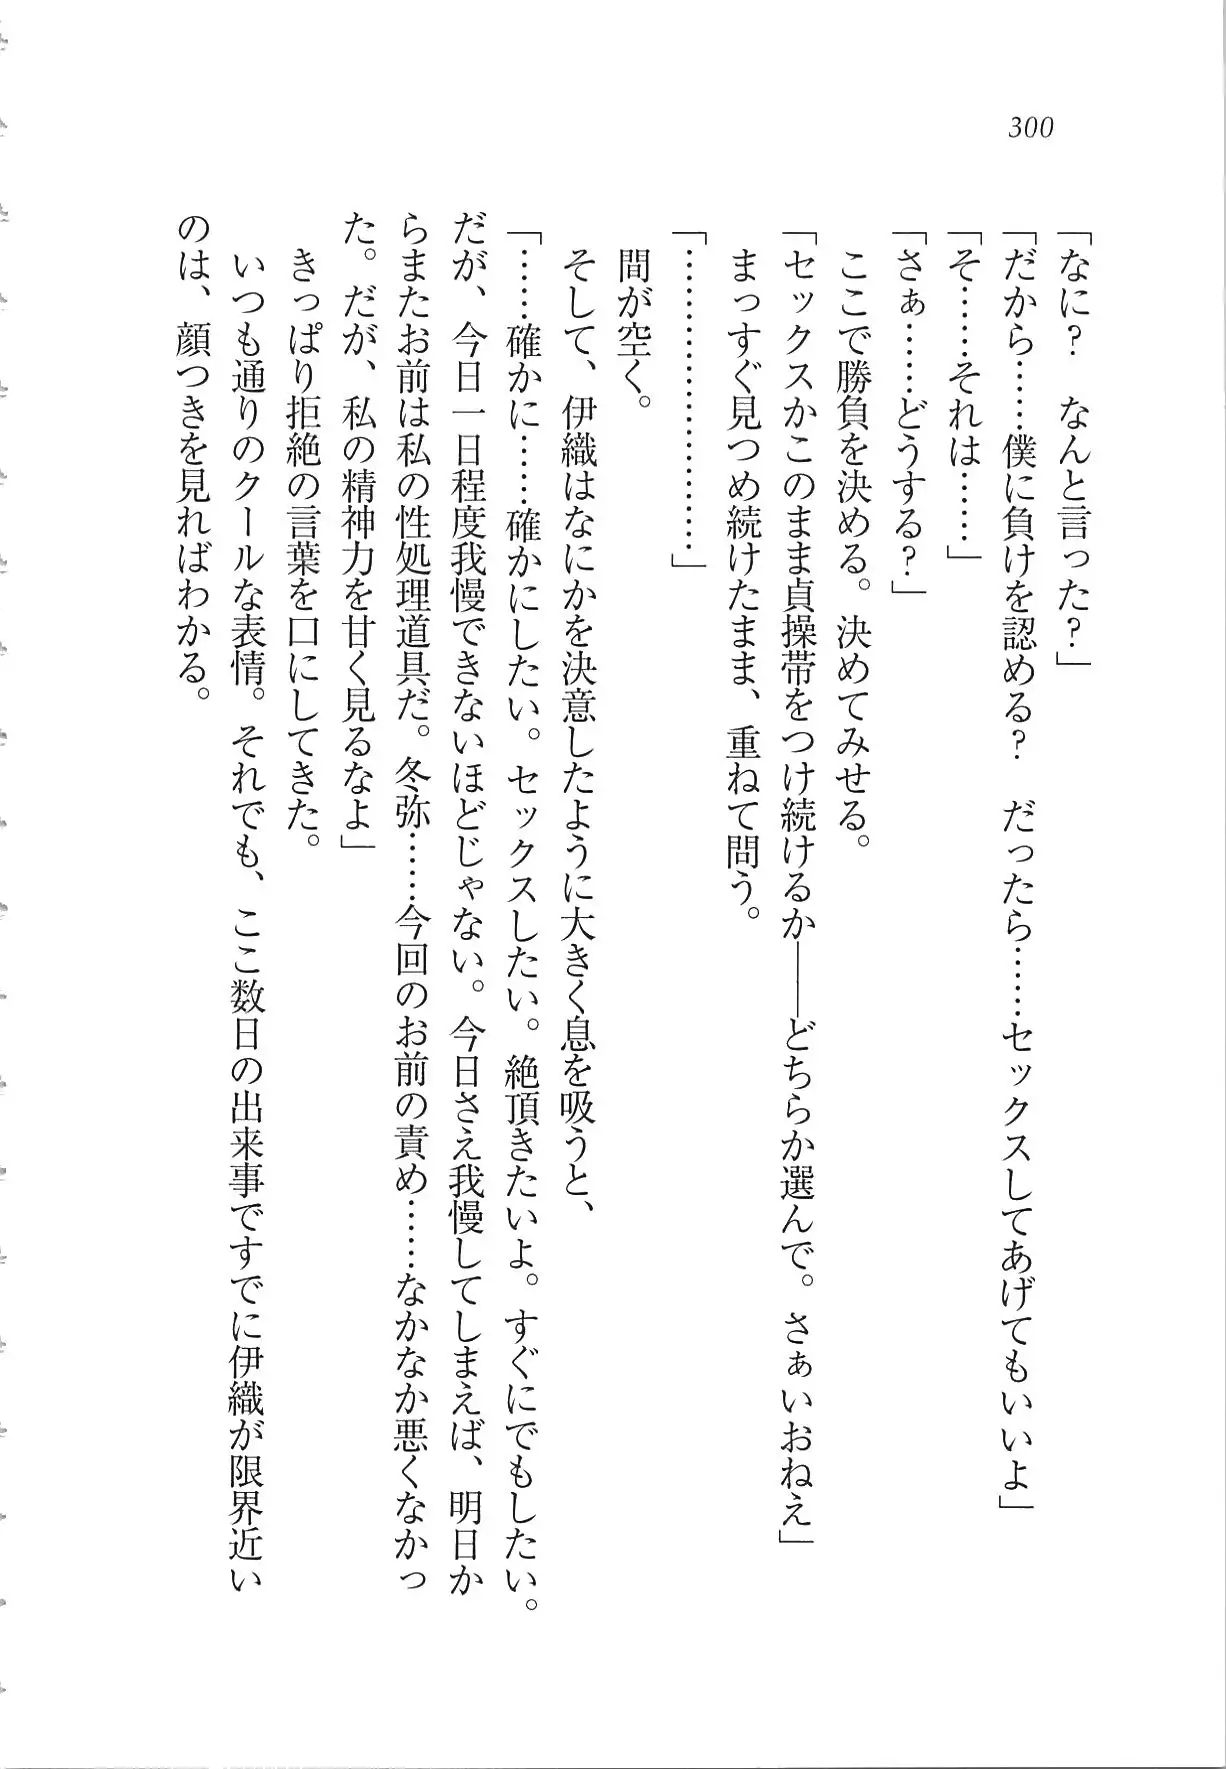 300
「なに？　なんと言った？」
「だから……僕に負けを認める？　だったら……セックスしてあげてもいいよ」
「そ……それは……」
「さぁ……どうする？」
ここで勝負を決める。決めてみせる。
「セックスかこのまま貞操帯をつけ続けるか――どちらか選んで。さぁいおねえ」
まっすぐ見つめ続けたまま、重ねて問う。
「……………………」
間が空く。
そして、伊織はなにかを決意したように大きく息を吸うと、
「……確かに……確かにしたい。セックスしたい。絶頂きたいよ。すぐにでもしたい。
だが、今日一日程度我慢できないほどじゃない。今日さえ我慢してしまえば、明日か
らまたお前は私の性処理道具だ。冬弥……今回のお前の責め……なかなか悪くなかっ
た。だが、私の精神力を甘く見るなよ」
きっぱり拒絶の言葉を口にしてきた。
いつも通りのクールな表情。それでも、ここ数日の出来事ですでに伊織が限界近い
のは、顔つきを見ればわかる。